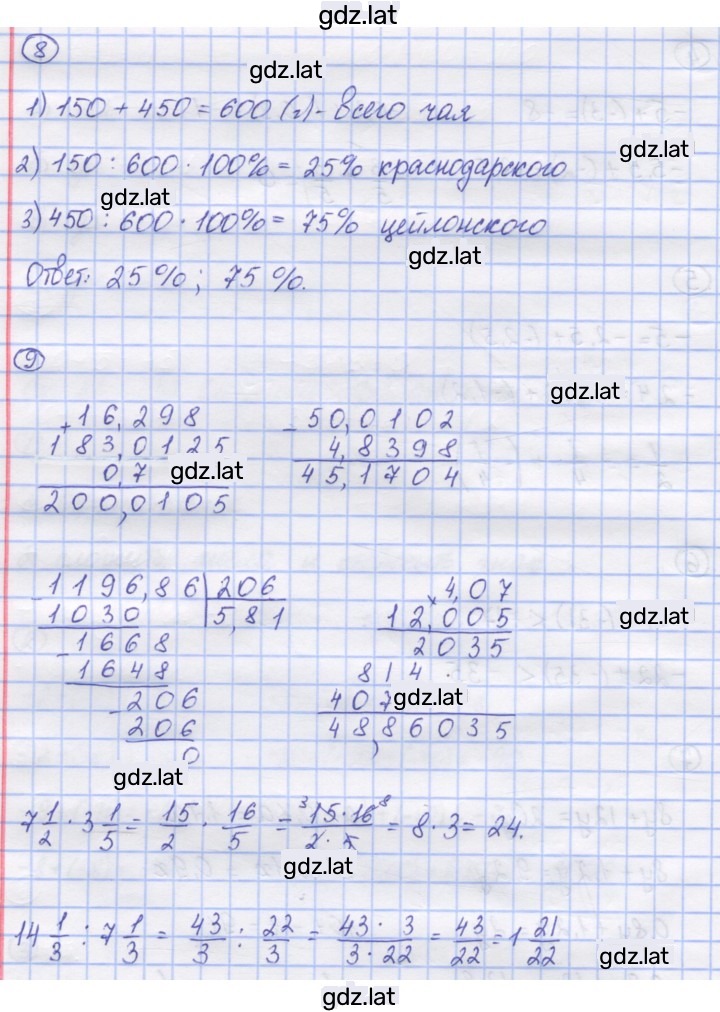 gdz.lat
8
gdz.lat
1) 150 + 450 = 600 (г) - всего чая
gdz.lat
2) 150 : 600 · 100% = 25% краснодарского
gdz.lat
3) 450 : 600 · 100% = 75% цейлонского
gdz.lat
Ответ: 25%; 75%.
9
gdz.lat
+ 16,298
183,0125
0,7
gdz.lat
200,0105
- 50,0102
4,8398
45,1704
- 1196,86 | 206
1030 | 5,81
- 1668
1648
- 206
206
0
× 4,07
12,005
2035
814
407
48,86035
gdz.lat
gdz.lat
gdz.lat
7 1/2 · 3 1/5 = 15/2 · 16/5 = ³15·16⁸/2·5 = 8·3 = 24.
gdz.lat
14 1/3 : 7 1/3 = 43/3 : 22/3 = 43·3/3·22 = 43/22 = 1 21/22
gdz.lat
gdz.lat